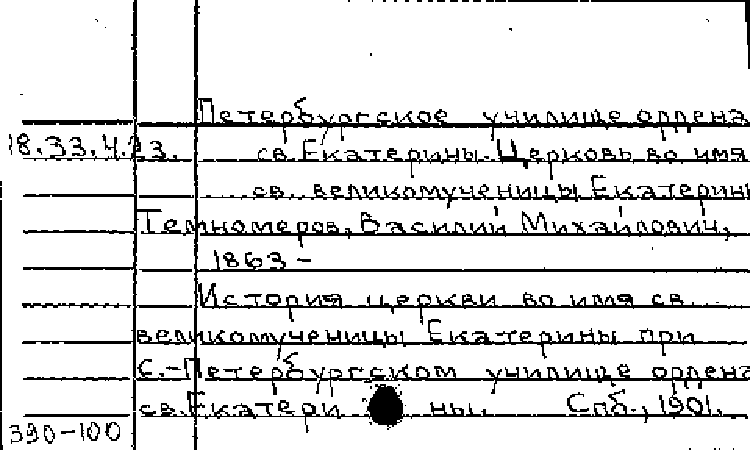 Петербургское училище ордена
18.33.4.23. св. Екатерины. Церковь во имя
св. великомученицы Екатерины
Темномеров, Василий Михайлович,
1863 -
История церкви во имя св.
великомученицы Екатерины при
С.-Петербургском училище ордена
св. Екатерины. Спб., 1901.
390-100